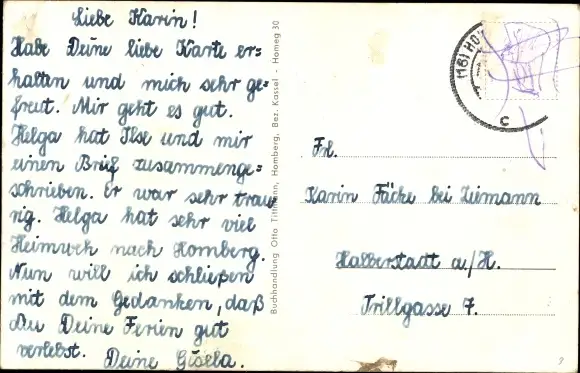 Liebe Karin!
Habe Deine liebe Karte er=
halten und mich sehr ge=
freut. Mir geht es gut.
Helga hat Ilse und mir
einen Brief zusammenge=
schrieben. Er war sehr trau
rig. Helga hat sehr viel
Heimweh nach Homberg.
Nun will ich schließen
mit dem Gedanken, daß
Du Deine Ferien gut
verlebst. Deine Gisela.
Buchhandlung Otto Tittmann, Homberg, Bez. Kassel - Homeg 30
(16) HO
c
Frl.
Karin Fäcke bei Ziemann
Halberstadt a./H.
Trillgasse 7.